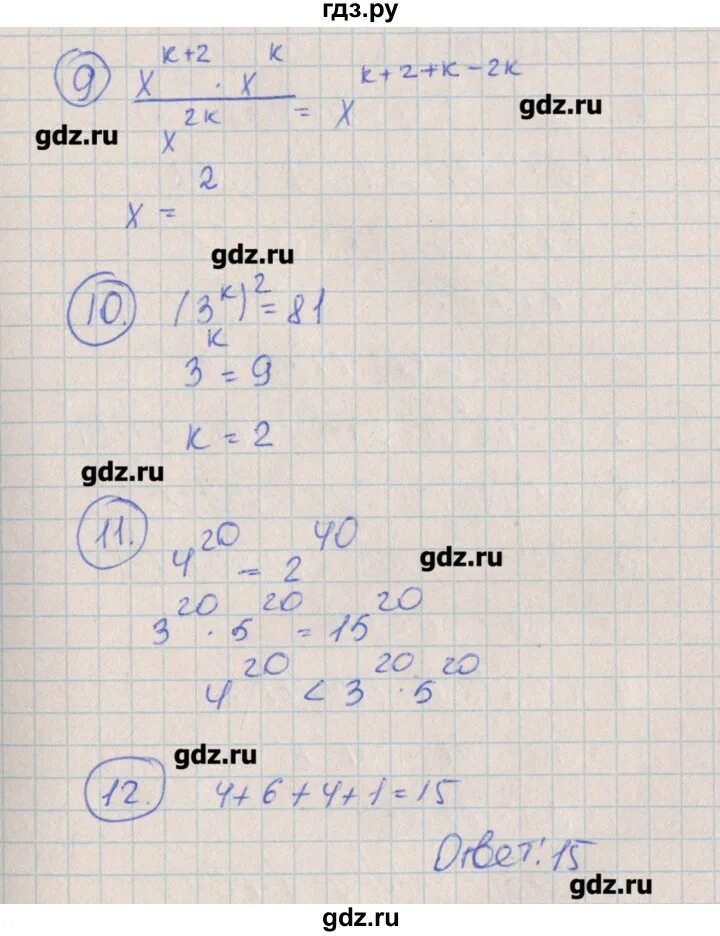 гдз.ру
9 x^(k+2) · x^k / x^(2k) = x^(k+2+k-2k)
gdz.ru
gdz.ru
x = 2
gdz.ru
10. (3^k)^2 = 81
3^k = 9
k = 2
gdz.ru
11. 4^20 = 2^40
gdz.ru
3^20 · 5^20 = 15^20
4^20 < 3^20 · 5^20
gdz.ru
12. 4+6+4+1=15
Ответ: 15
gdz.ru
gdz.ru